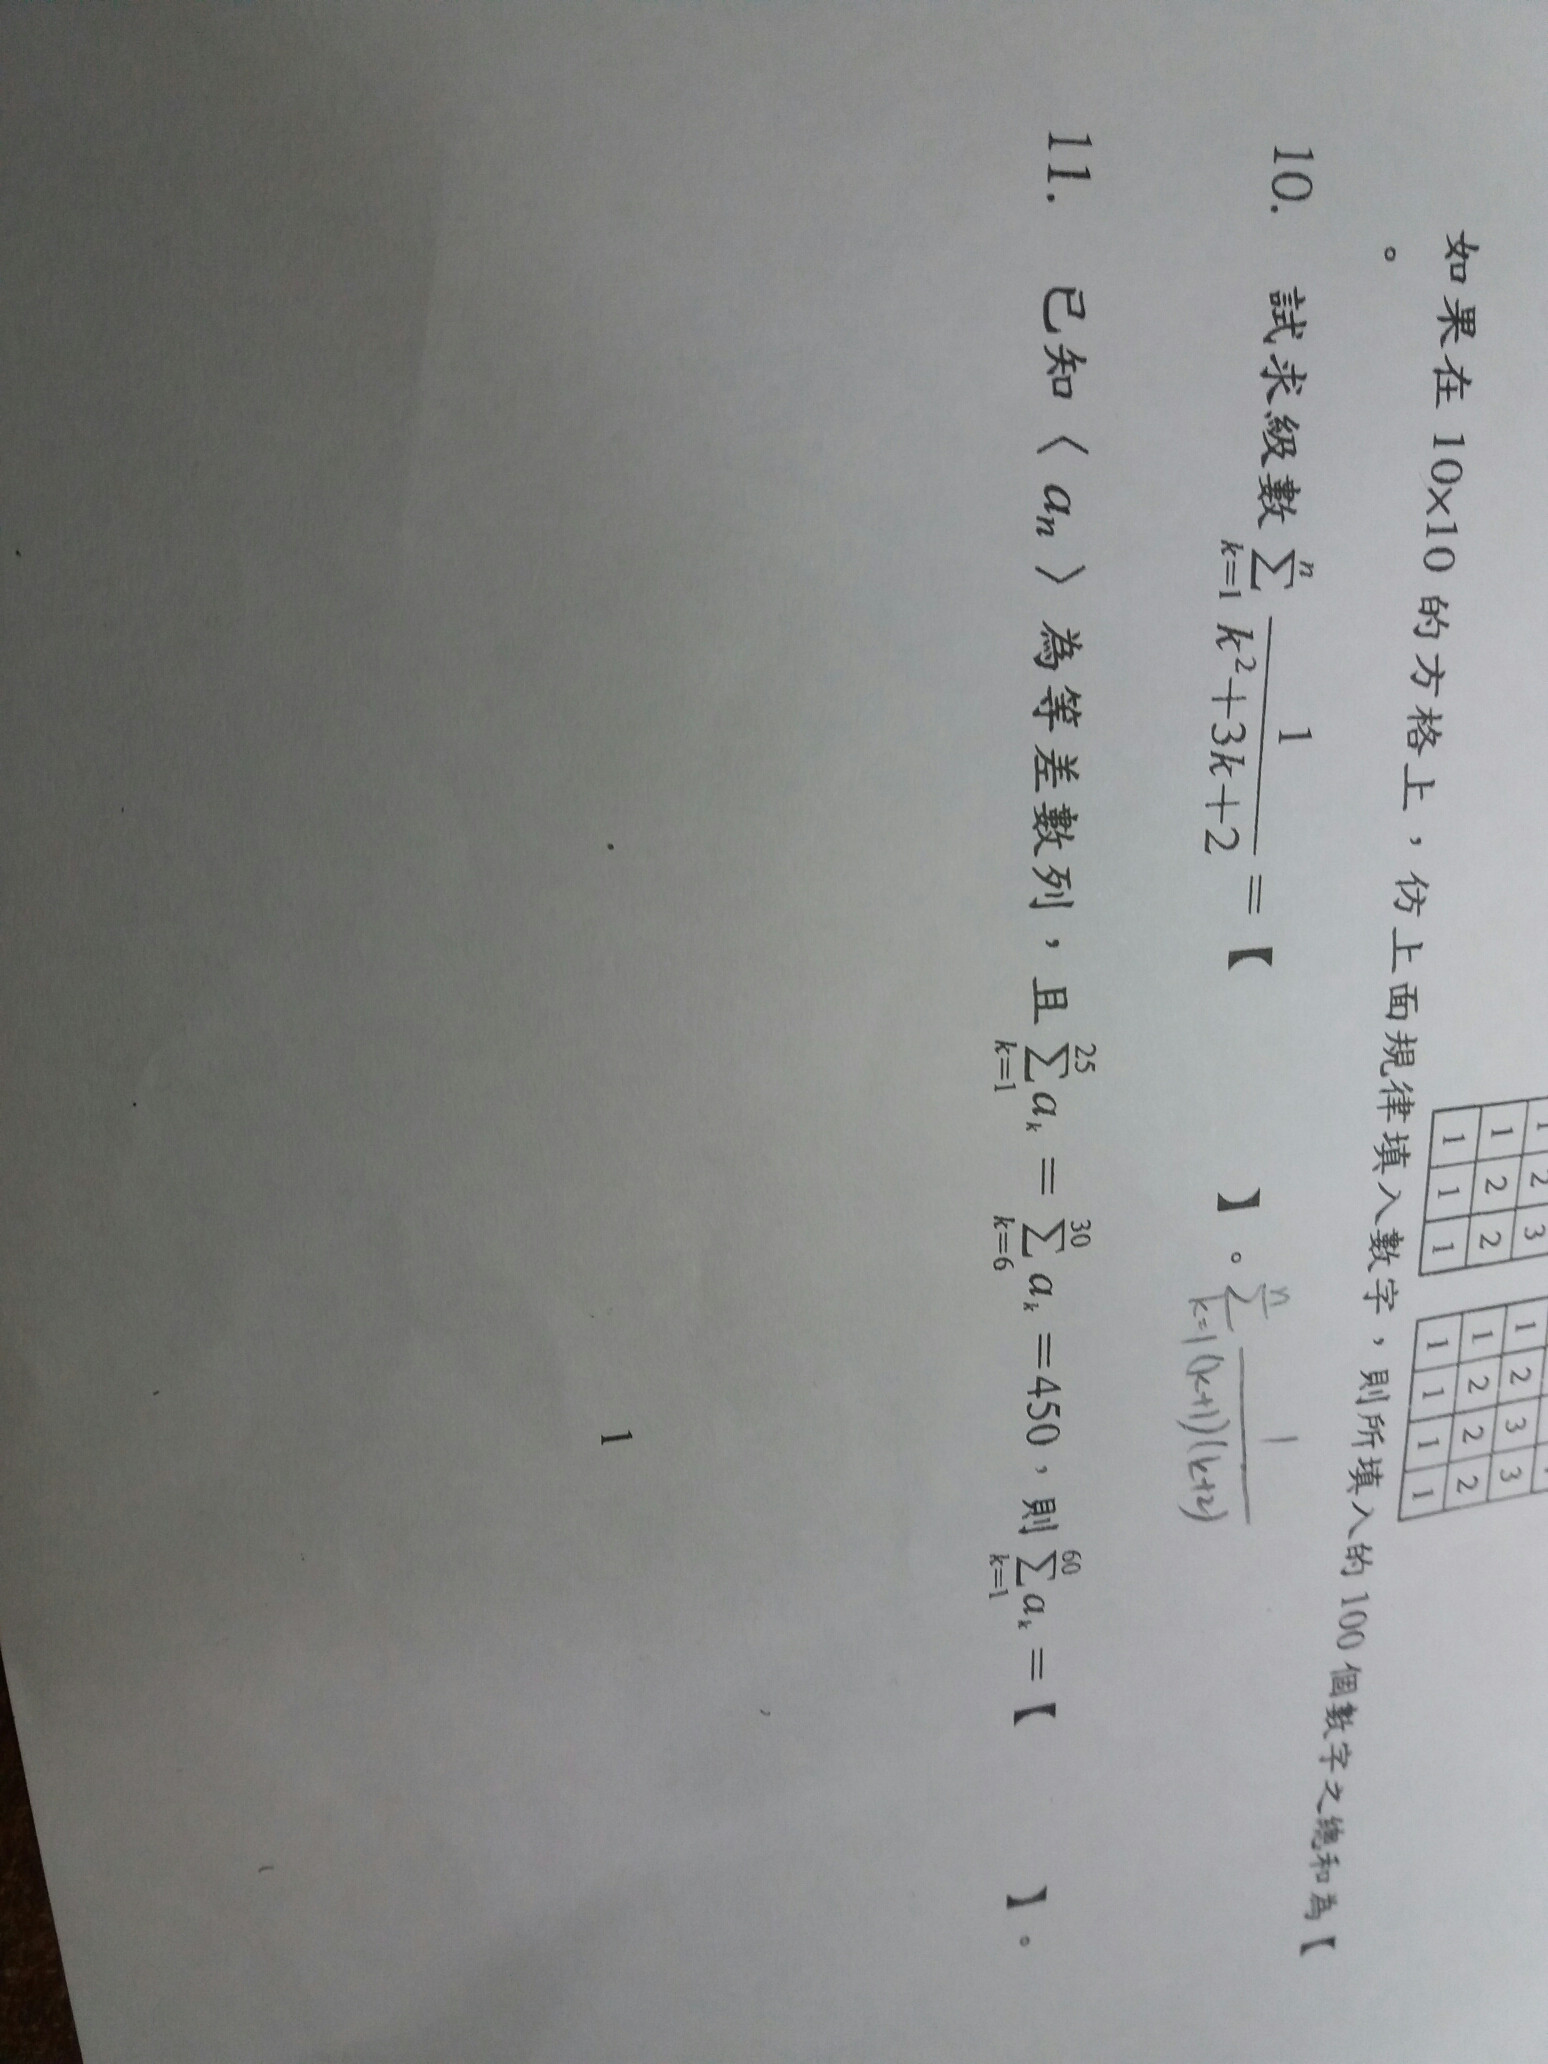 1 2 3
1 2 2
1 1 1
1 2 3 3
1 2 2 2
1 1 1 1
如果在 10×10 的方格上，仿上面規律填入數字，則所填入的 100 個數字之總和為【
。
10. 試求級數 \sum_{k=1}^{n} \frac{1}{k^2+3k+2} =【　　　】。 \sum_{k=1}^{n} \frac{1}{(k+1)(k+2)}
11. 已知〈 a_n 〉為等差數列，且 \sum_{k=1}^{25} a_k = \sum_{k=6}^{30} a_k =450，則 \sum_{k=1}^{60} a_k =【　　　】。
1